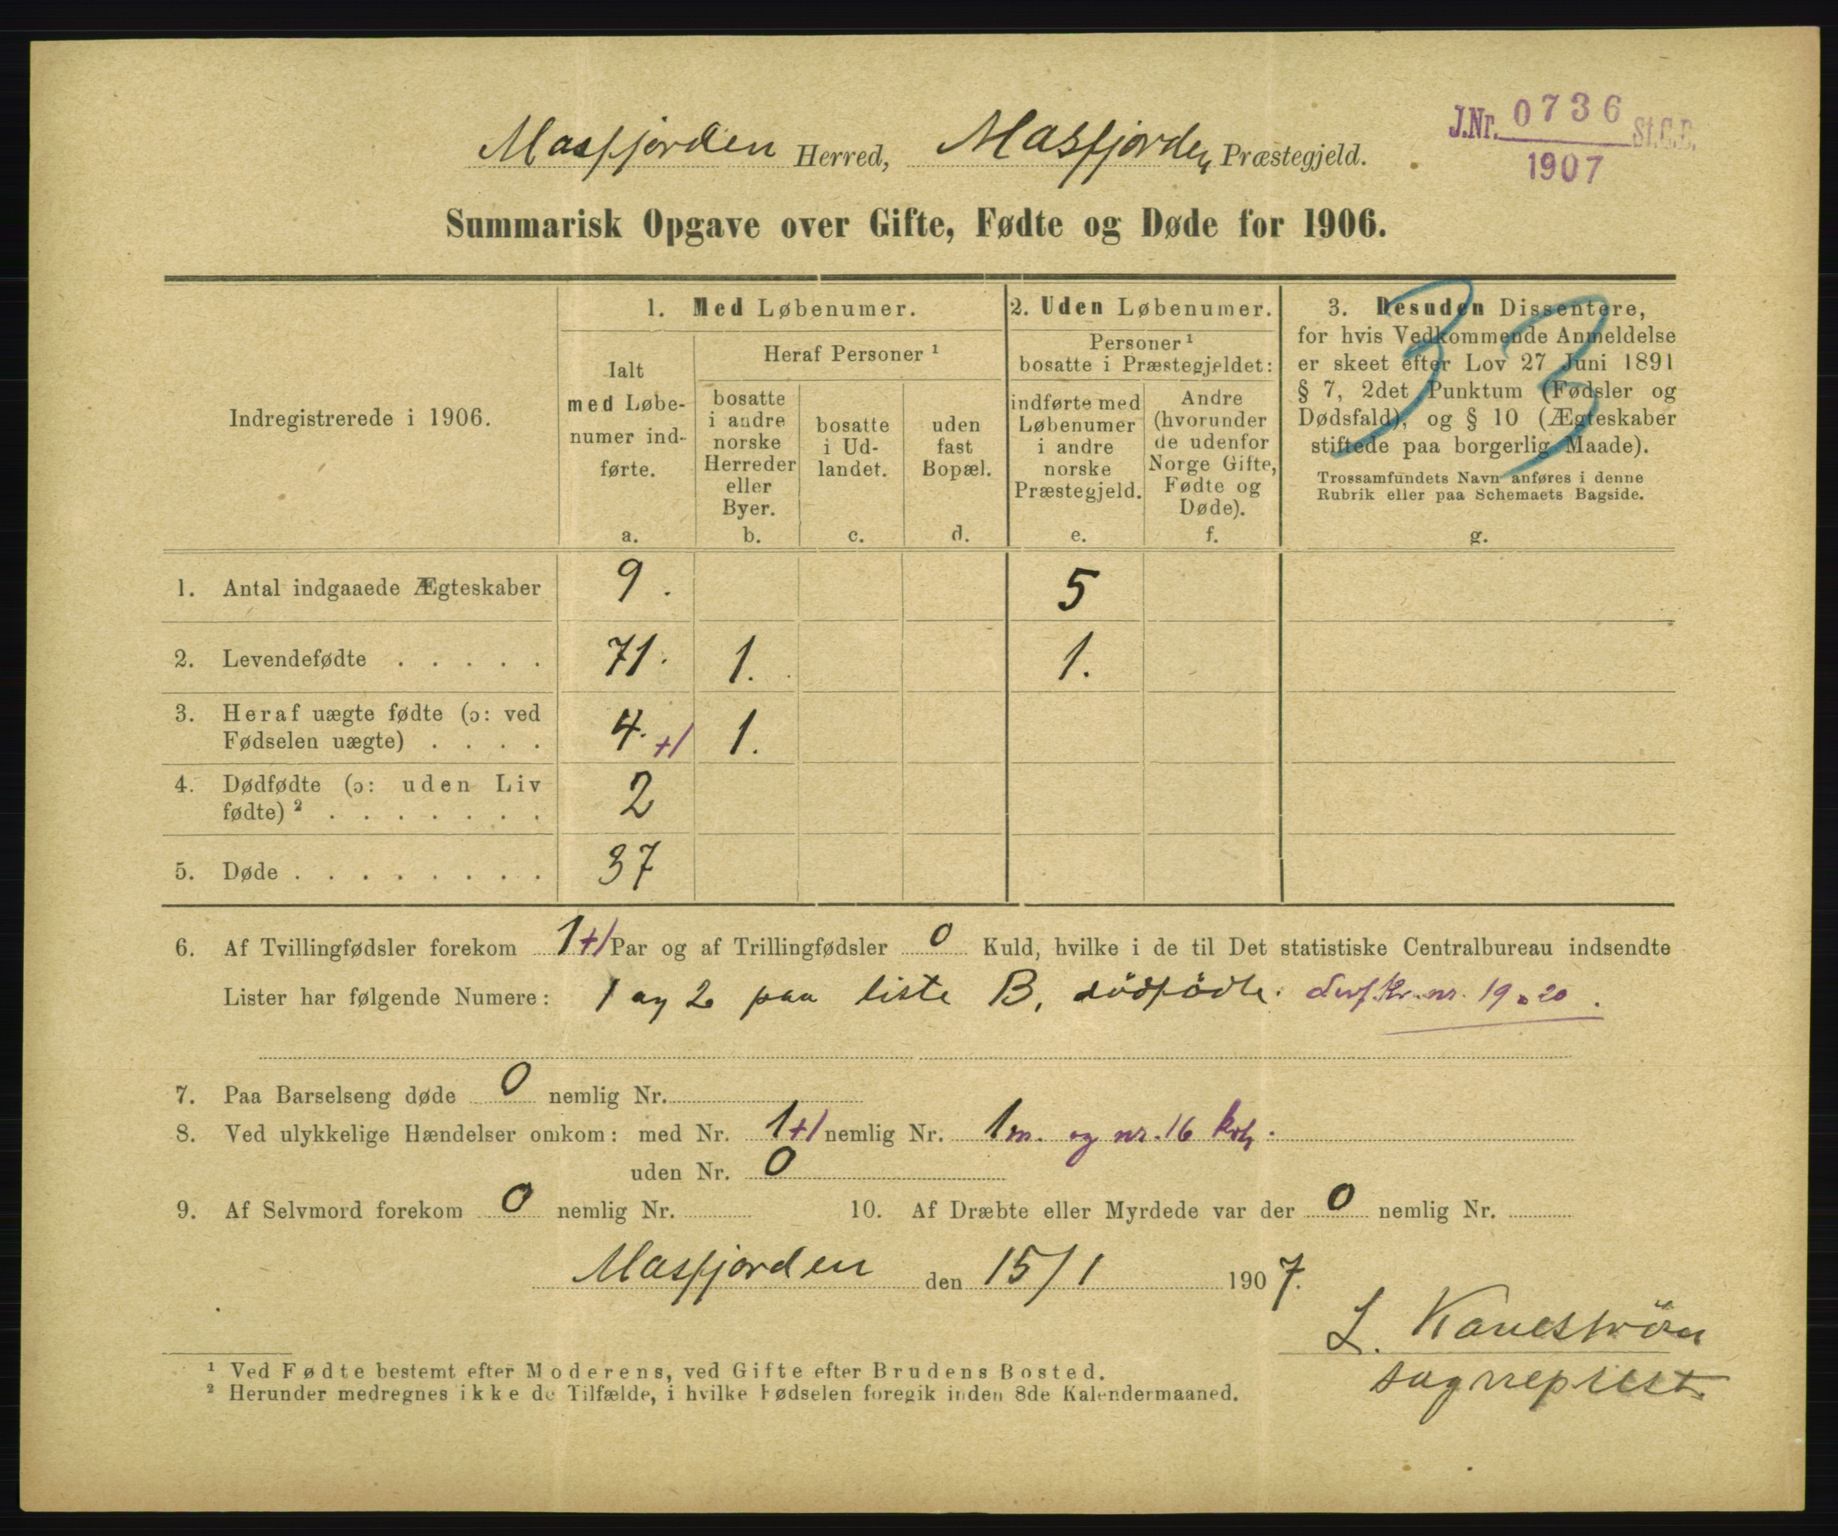 Masfjorden Herred, Masfjorden Præstegjeld.
J.Nr. 0736 St.C.B.
1907
Summarisk Opgave over Gifte, Fødte og Døde for 1906.
33
Indregistrerede i 1906.
1. Med Løbenumer.
Ialt
med Løbe-
numer ind-
førte.
a.
Heraf Personer ¹
bosatte
i andre
norske
Herreder
eller
Byer.
b.
bosatte
i Ud-
landet.
c.
uden
fast
Bopæl.
d.
2. Uden Løbenumer.
Personer ¹
bosatte i Præstegjeldet:
indførte med
Løbenumer
i andre
norske
Præstegjeld.
e.
Andre
(hvorunder
de udenfor
Norge Gifte,
Fødte og
Døde).
f.
3. Desuden Dissentere,
for hvis Vedkommende Anmeldelse
er skeet efter Lov 27 Juni 1891
§ 7, 2det Punktum (Fødsler og
Dødsfald), og § 10 (Ægteskaber
stiftede paa borgerlig Maade).
Trossamfundets Navn anføres i denne
Rubrik eller paa Schemaets Bagside.
g.
1. Antal indgaaede Ægteskaber 9. 5
2. Levendefødte . . . . . 71. 1. 1.
3. Heraf uægte fødte (ɔ: ved
Fødselen uægte) . . . . 4. +1 1.
4. Dødfødte (ɔ: uden Liv
fødte) ² . . . . . . . 2
5. Døde . . . . . . . . 37
6. Af Tvillingfødsler forekom 1 +1 Par og af Trillingfødsler 0 Kuld, hvilke i de til Det statistiske Centralbureau indsendte
Lister har følgende Numere: 1 og 2 paa liste B, dödfödte. nr. 19 20.
7. Paa Barselseng døde 0 nemlig Nr.
8. Ved ulykkelige Hændelser omkom: med Nr. 1 +1 nemlig Nr. 1 m. og nr. 16 kv.
uden Nr. 0
9. Af Selvmord forekom 0 nemlig Nr. 10. Af Dræbte eller Myrdede var der 0 nemlig Nr.
Masfjorden den 15/1 1907.
L. Kanestrøm
sogneprest.
¹ Ved Fødte bestemt efter Moderens, ved Gifte efter Brudens Bosted.
² Herunder medregnes ikke de Tilfælde, i hvilke Fødselen foregik inden 8de Kalendermaaned.